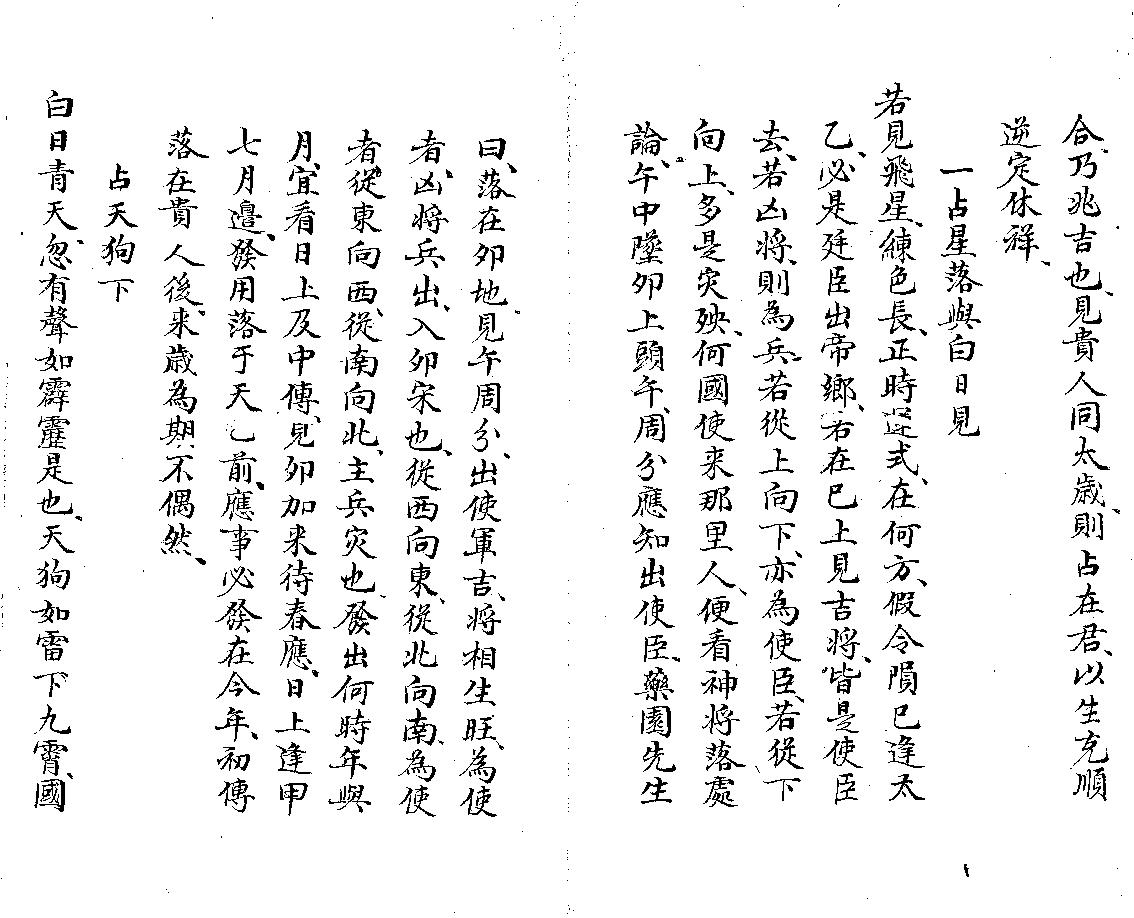 合、乃兆吉也、見貴人同太歲、則占在君、以生克順
逆定休祥、
一占星落與白日見
若見飛星、練色長、正時逆式、在何方、假令隕巳逢太
乙、必是廷臣出帝鄉、若在巳上見吉將、皆是使臣
去、若凶將、則為兵、若從上向下、亦為使臣、若從下
向上、多是災殃、何國使来那里人、便看神將落處
論、午中墜卯上頭午、周分應知出使臣、藥園先生
曰、落在卯地見午周分、出使軍吉、將相生旺、為使
者、凶將兵出、入卯宋也、從西向東、從北向南、為使
者、從東向西、從南向北、主兵灾也、發出何時年與
月、宜看日上及中傳、見卯加来待春應、日上逢甲
七月邊、發用落于天乙前、應事必發在今年、初傳
落在貴人後、来歲為期不偶然、
占天狗下
白日青天、忽有聲如霹靂是也、天狗如雷下九霄、國